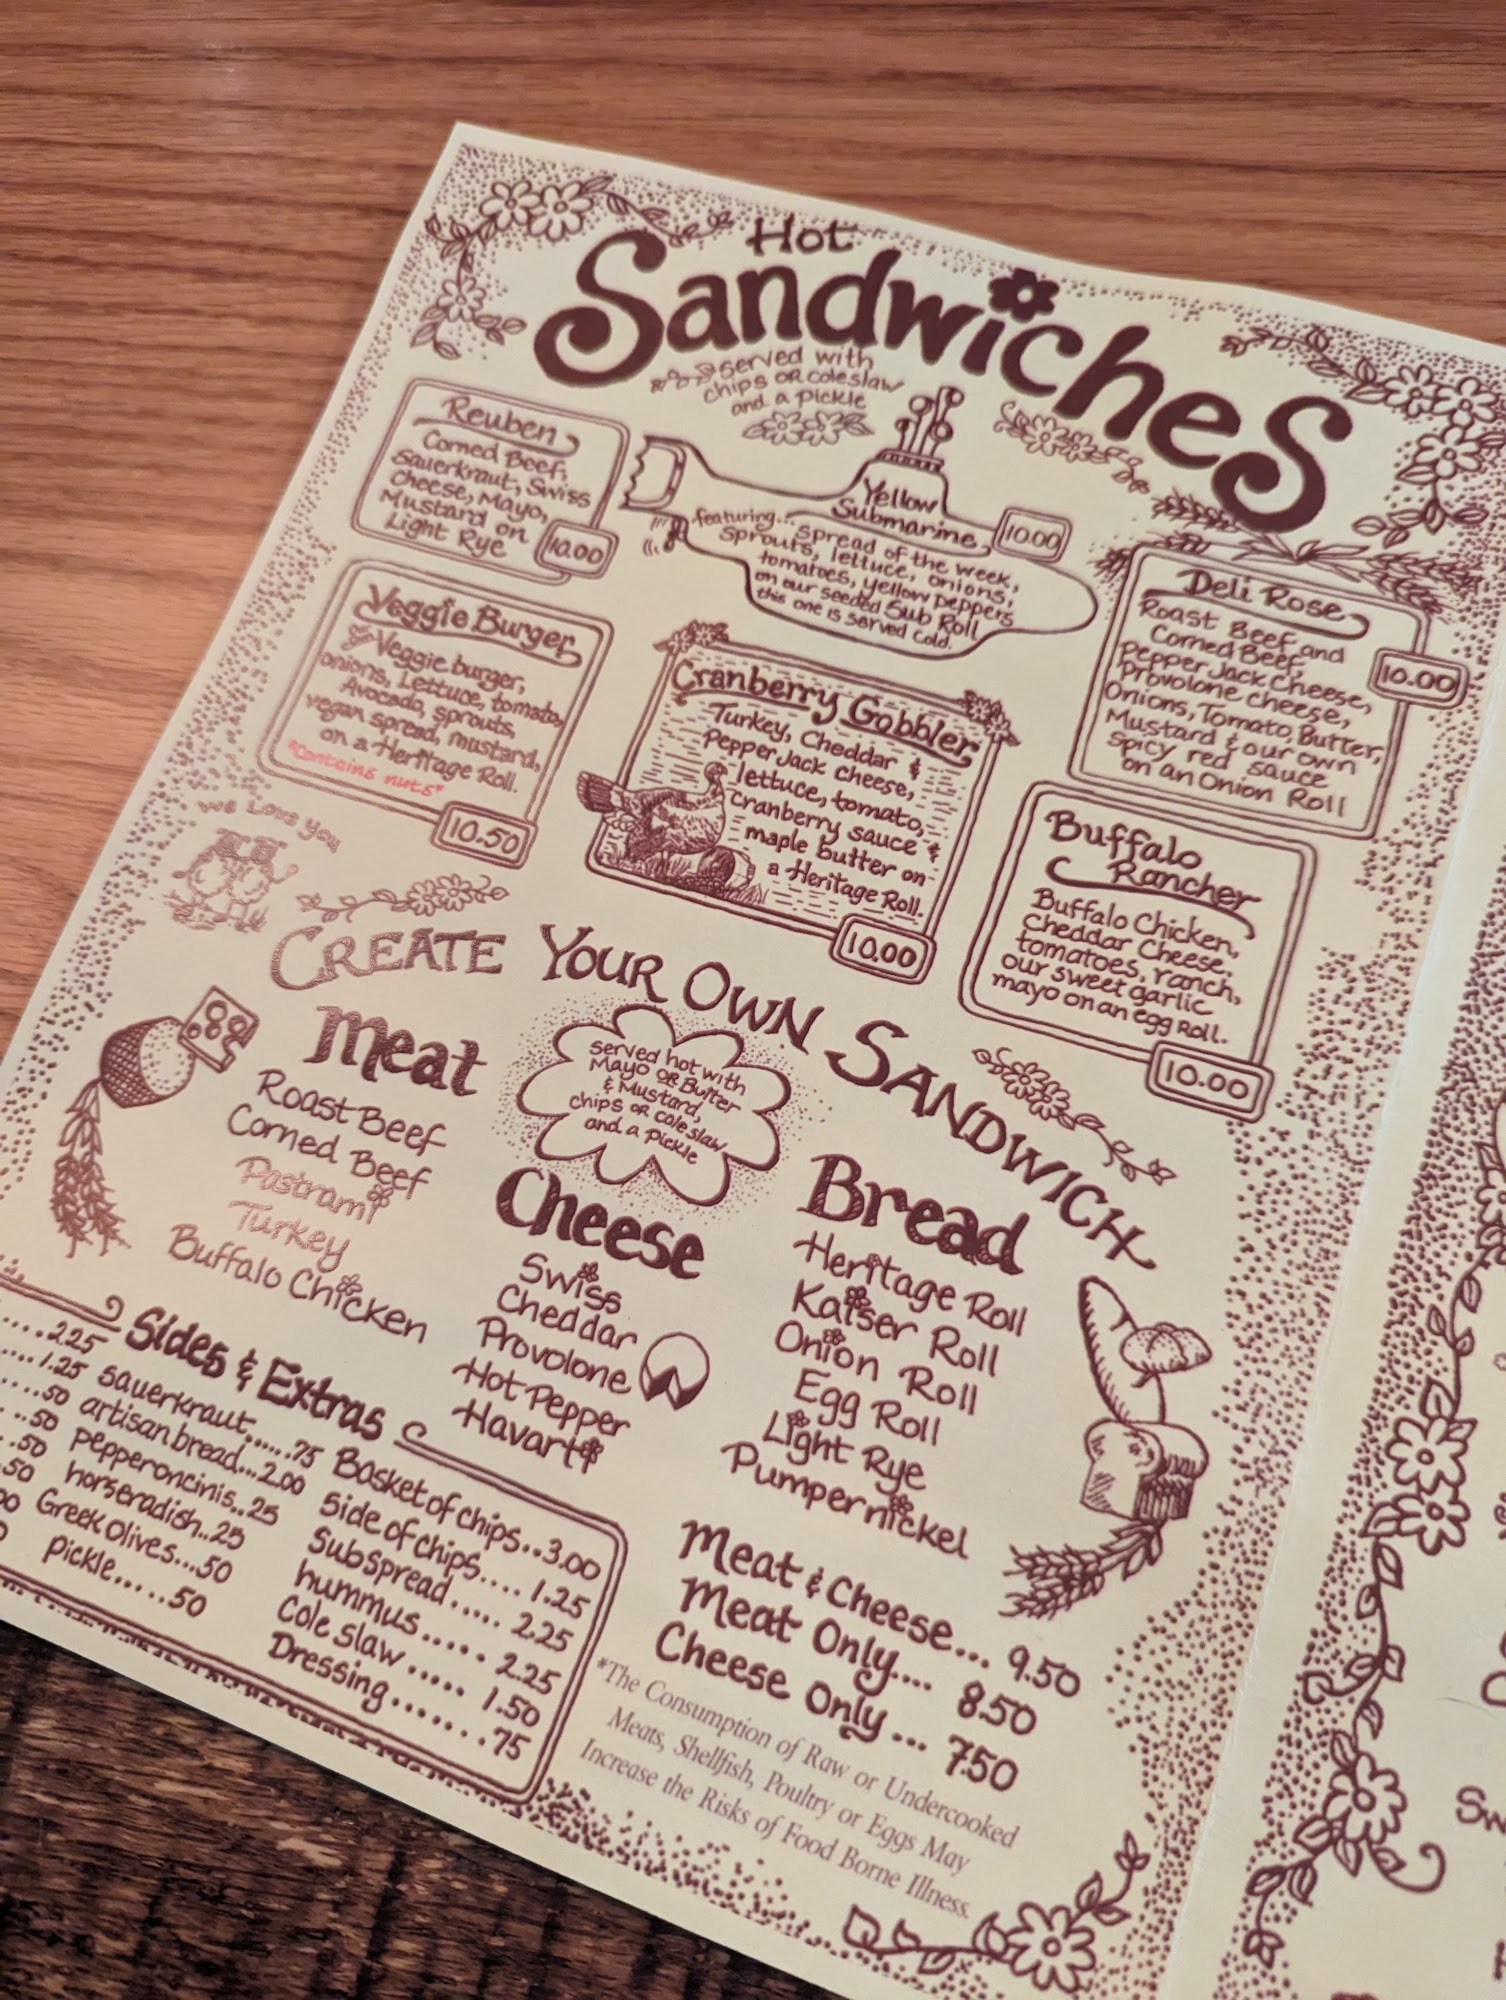 Hot
Sandwiches
served with
chips or coleslaw
and a pickle
Reuben
Corned Beef,
Sauerkraut, Swiss
Cheese, Mayo,
Mustard on
Light Rye
10.00
Yellow
Submarine
10.00
featuring... spread of the week,
sprouts, lettuce, onions,
tomatoes, yellow peppers
on our seeded Sub Roll
this one is served cold.
Deli Rose
Roast Beef and
Corned Beef,
Pepper Jack Cheese,
Provolone Cheese,
Onions, Tomato, Butter,
Mustard & our own
spicy red sauce
on an Onion Roll
10.00
Veggie Burger
Veggie burger,
onions, Lettuce, tomato,
Avocado, sprouts,
vegan spread, mustard,
on a Heritage Roll.
*Contains nuts*
10.50
Cranberry Gobbler
Turkey, Cheddar &
Pepper Jack cheese,
lettuce, tomato,
cranberry sauce &
maple butter on
a Heritage Roll.
10.00
Buffalo
Rancher
Buffalo Chicken,
Cheddar Cheese,
tomatoes, ranch,
our sweet garlic
mayo on an egg Roll.
10.00
We Love You
CREATE YOUR OWN SANDWICH
served hot with
Mayo or Butter
& Mustard,
chips or cole slaw
and a pickle
Meat
Roast Beef
Corned Beef
Pastrami
Turkey
Buffalo Chicken
Cheese
Swiss
Cheddar
Provolone
Hot Pepper
Havarti
Bread
Heritage Roll
Kaiser Roll
Onion Roll
Egg Roll
Light Rye
Pumpernickel
Meat & Cheese... 9.50
Meat Only.... 8.50
Cheese Only... 7.50
Sides & Extras
....2.25
....1.25
....50
...50
...50
.50
sauerkraut.....75
artisan bread...2.00
pepperoncinis..25
horseradish..25
Greek Olives...50
pickle.....50
Basket of chips..3.00
Side of chips.... 1.25
Sub spread..... 2.25
hummus..... 2.25
Cole slaw...... 1.50
Dressing.......75
*The Consumption of Raw or Undercooked
Meats, Shellfish, Poultry or Eggs May
Increase the Risks of Food Borne Illness.